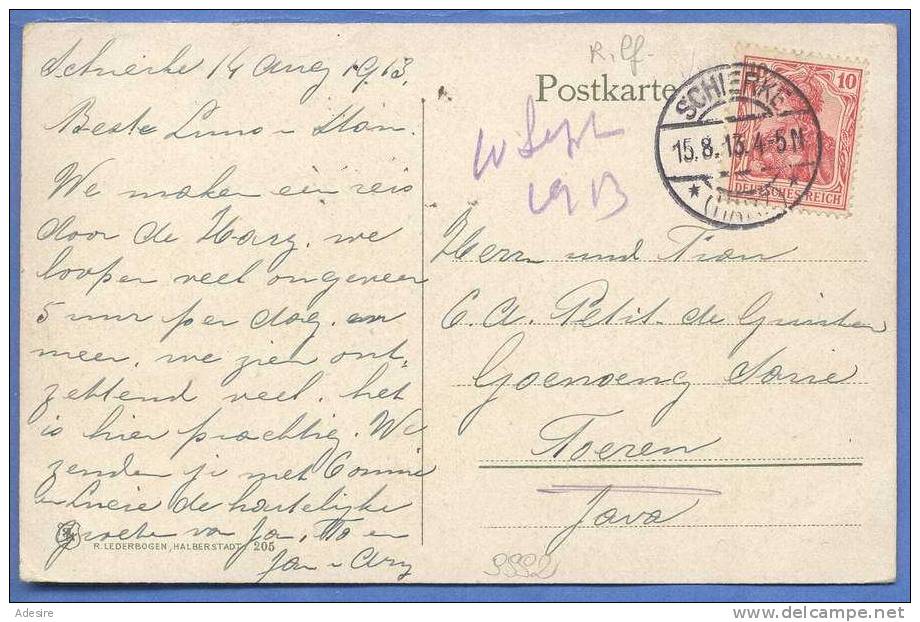 Schierke 14 Aug 1913.
Beste
We maken een reis
door de Harz, we
loopen veel ongeveer
5 uur per dag, en
meer, we zien ont-
zettend veel. het
is hier prachtig. We
zenden je met
en Lucie de hartelijke
groeten van Jan, To en
Jan
R. LEDERBOGEN, HALBERSTADT. 205
Postkarte
10 Sept
1913
SCHIERKE
15.8.13.4-5N
10
DEUTSCHES REICH
Herrn und
C. A. Petit de
Goenoeng
Toeren
Java
Adesire
delcampe.net